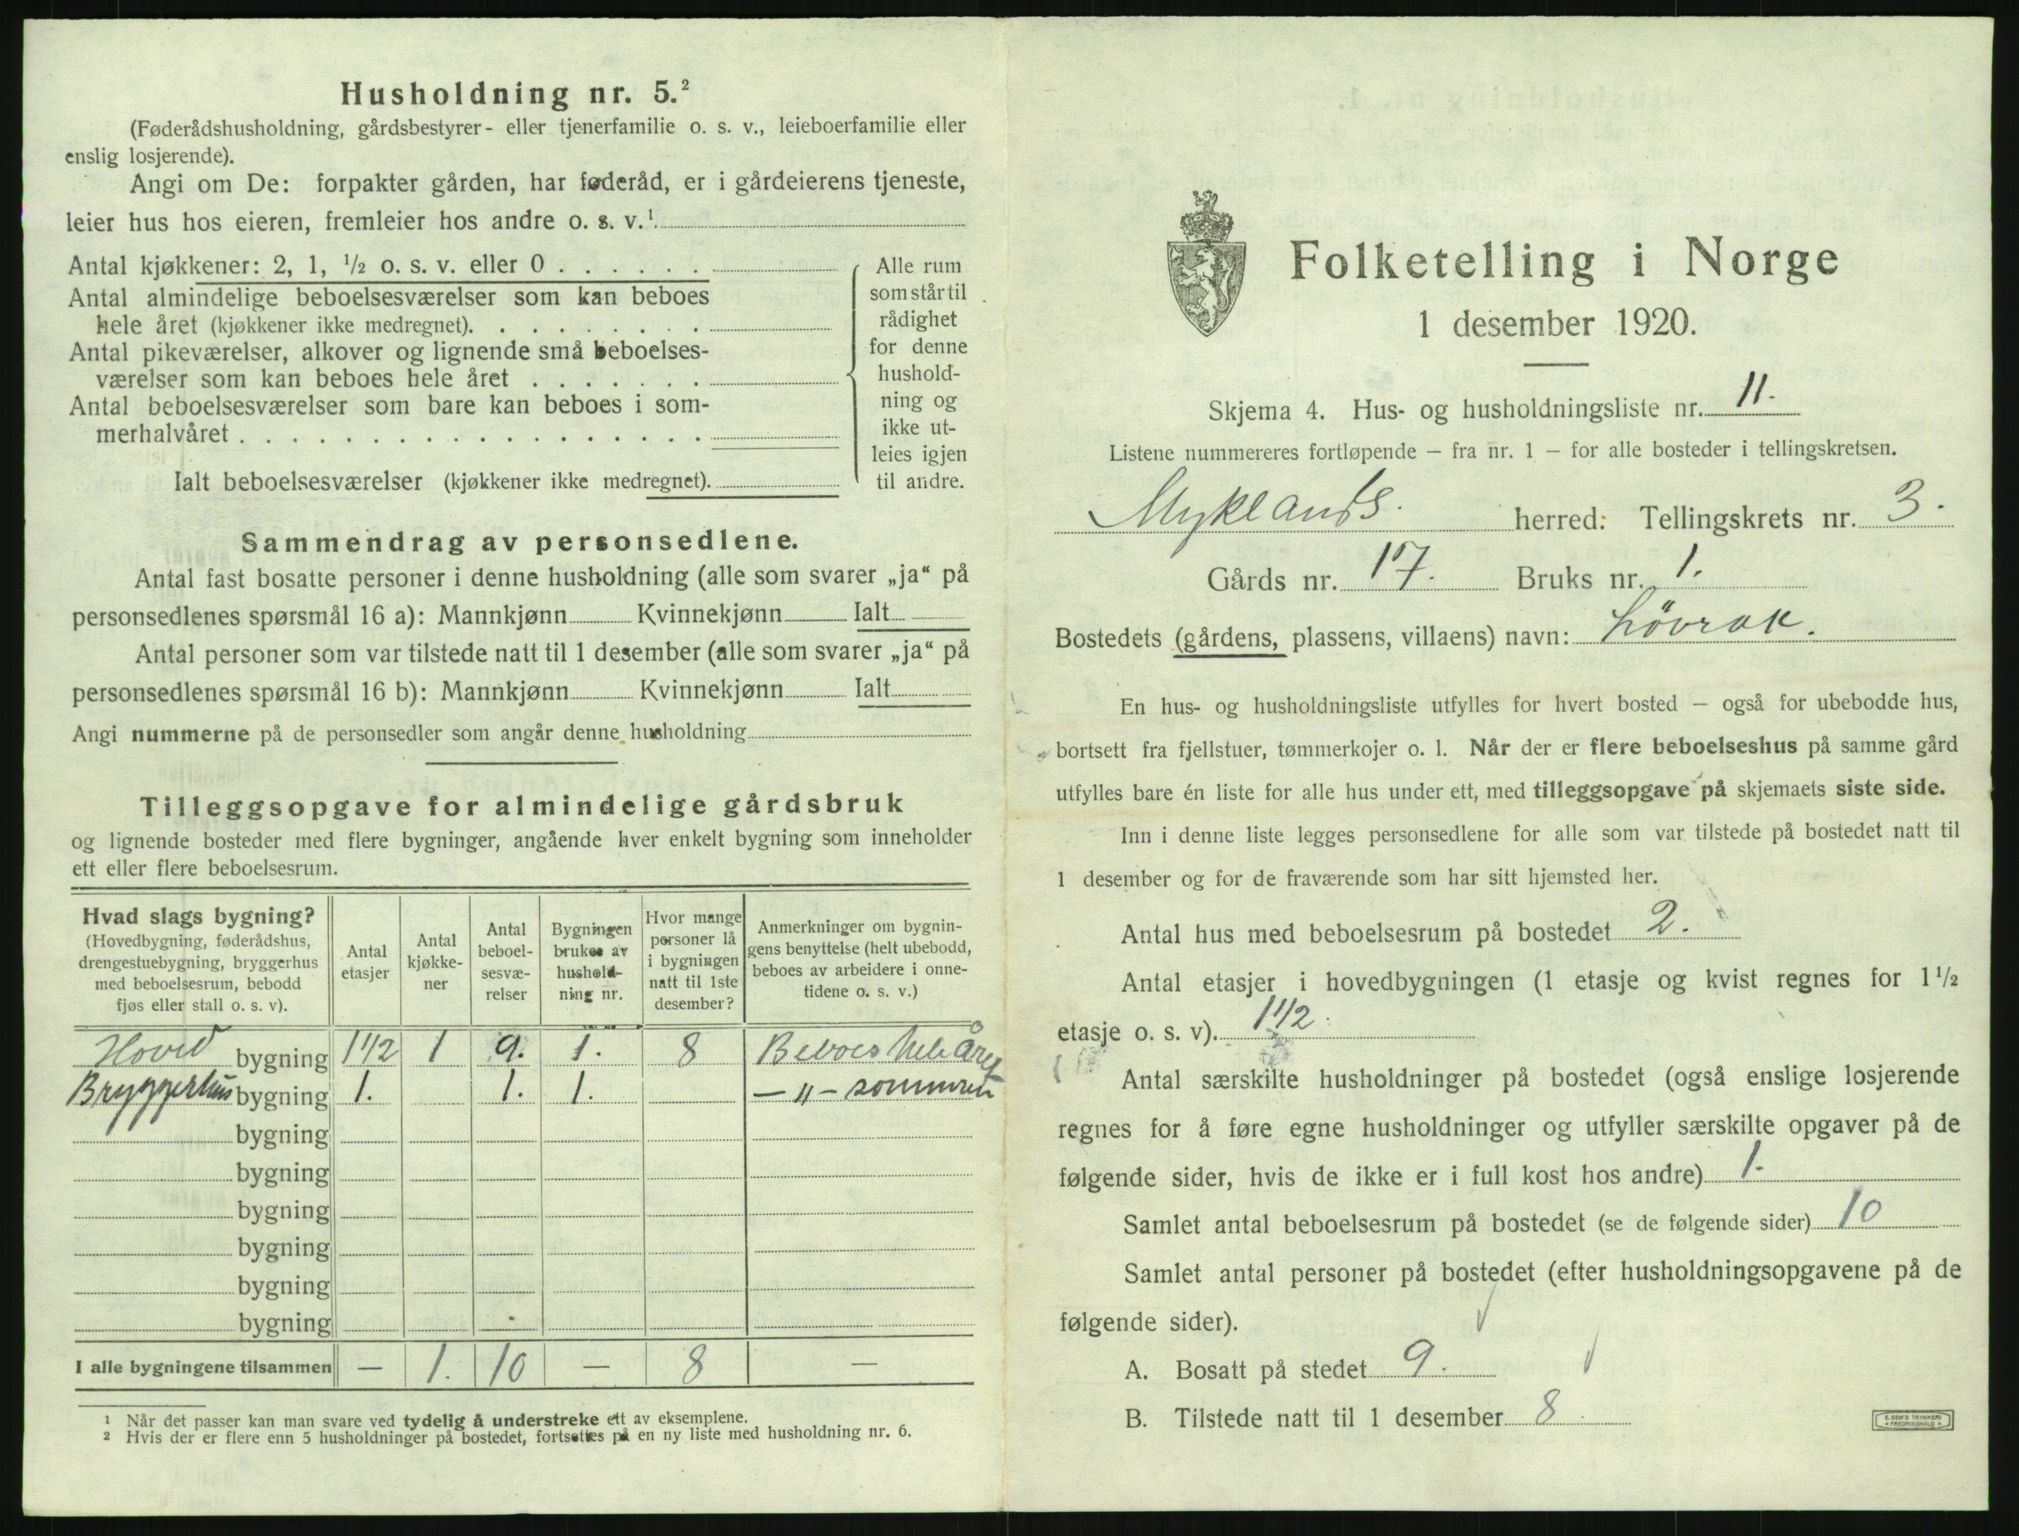 Husholdning nr. 5.²
(Føderådshusholdning, gårdsbestyrer- eller tjenerfamilie o. s. v., leieboerfamilie eller
enslig losjerende).
Angi om De: forpakter gården, har føderåd, er i gårdeierens tjeneste,
leier hus hos eieren, fremleier hos andre o. s. v.¹
Antal kjøkkener: 2, 1, ½ o. s. v. eller 0 . . . . . .
Antal almindelige beboelsesværelser som kan beboes
hele året (kjøkkener ikke medregnet). . . . . . . . .
Antal pikeværelser, alkover og lignende små beboelses-
værelser som kan beboes hele året . . . . . . .
Antal beboelsesværelser som bare kan beboes i som-
merhalvåret . . . . . . . . . . . . . . . . . .
Ialt beboelsesværelser (kjøkkener ikke medregnet).
Alle rum
som står til
rådighet
for denne
hushold-
ning og
ikke ut-
leies igjen
til andre.
Sammendrag av personsedlene.
Antal fast bosatte personer i denne husholdning (alle som svarer „ja“ på
personsedlenes spørsmål 16 a): Mannkjønn Kvinnekjønn Ialt
Antal personer som var tilstede natt til 1 desember (alle som svarer „ja“ på
personsedlenes spørsmål 16 b): Mannkjønn Kvinnekjønn Ialt
Angi nummerne på de personsedler som angår denne husholdning
Tilleggsopgave for almindelige gårdsbruk
og lignende bosteder med flere bygninger, angående hver enkelt bygning som inneholder
ett eller flere beboelsesrum.
Hvad slags bygning?
(Hovedbygning, føderådshus,
drengestuebygning, bryggerhus
med beboelsesrum, bebodd
fjøs eller stall o. s. v).
Antal
etasjer
Antal
kjøkke-
ner
Antal
beboel-
sesvæ-
relser
Bygningen
brukes av
hushold-
ning nr.
Hvor mange
personer lå
i bygningen
natt til 1ste
desember?
Anmerkninger om bygnin-
gens benyttelse (helt ubebodd,
beboes av arbeidere i onne-
tidene o. s. v.)
Hoved bygning 1 1/2 1 9. 1. 8 Beboes hele Året
Bryggerhus bygning 1. 1. 1. — " — sommeren
bygning
bygning
bygning
bygning
bygning
bygning
I alle bygningene tilsammen — 1. 10 — 8 —
1 Når det passer kan man svare ved tydelig å understreke ett av eksemplene.
2 Hvis der er flere enn 5 husholdninger på bostedet, fortsettes på en ny liste med husholdning nr. 6.
Folketelling i Norge
1 desember 1920.
Skjema 4. Hus- og husholdningsliste nr. 11.
Listene nummereres fortløpende – fra nr. 1 – for alle bosteder i tellingskretsen.
Myklands. herred: Tellingskrets nr. 3.
Gårds nr. 17. Bruks nr. 1.
Bostedets (gårdens, plassens, villaens) navn: Løvrak.
En hus- og husholdningsliste utfylles for hvert bosted – også for ubebodde hus,
bortsett fra fjellstuer, tømmerkojer o. l. Når der er flere beboelseshus på samme gård
utfylles bare én liste for alle hus under ett, med tilleggsopgave på skjemaets siste side.
Inn i denne liste legges personsedlene for alle som var tilstede på bostedet natt til
1 desember og for de fraværende som har sitt hjemsted her.
Antal hus med beboelsesrum på bostedet 2.
Antal etasjer i hovedbygningen (1 etasje og kvist regnes for 1½
etasje o. s. v). 1 1/2.
Antal særskilte husholdninger på bostedet (også enslige losjerende
regnes for å føre egne husholdninger og utfyller særskilte opgaver på de
følgende sider, hvis de ikke er i full kost hos andre) 1.
Samlet antal beboelsesrum på bostedet (se de følgende sider) 10
Samlet antal personer på bostedet (efter husholdningsopgavene på de
følgende sider).
A. Bosatt på stedet 9.
B. Tilstede natt til 1 desember 8.
E. SEM'S TRYKKERI
FREDRIKSHALD